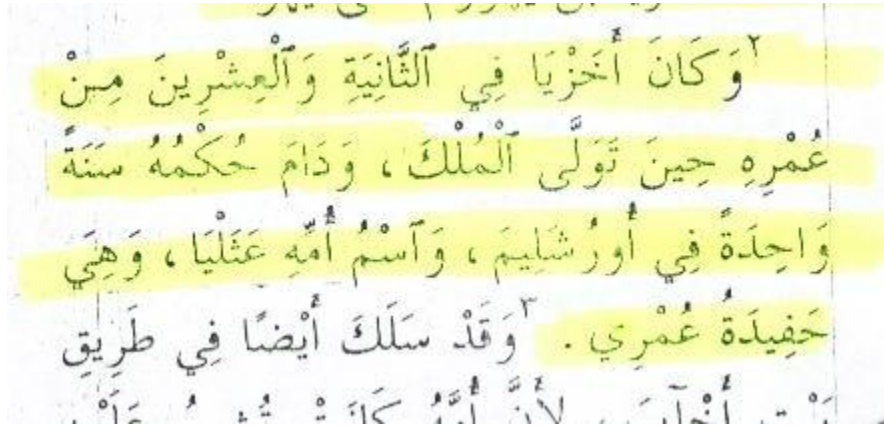 ٢وَكَانَ أَخَزْيَا فِي ٱلثَّانِيَةِ وَٱلْعِشْرِينَ مِنْ
عُمْرِهِ حِينَ تَوَلَّى ٱلْمُلْكَ، وَدَامَ حُكْمُهُ سَنَةً
وَاحِدَةً فِي أُورُشَلِيمَ، وَٱسْمُ أُمِّهِ عَثَلْيَا، وَهِيَ
حَفِيدَةُ عُمْرِي. ٣وَقَدْ سَلَكَ أَيْضًا فِي طَرِيقِ